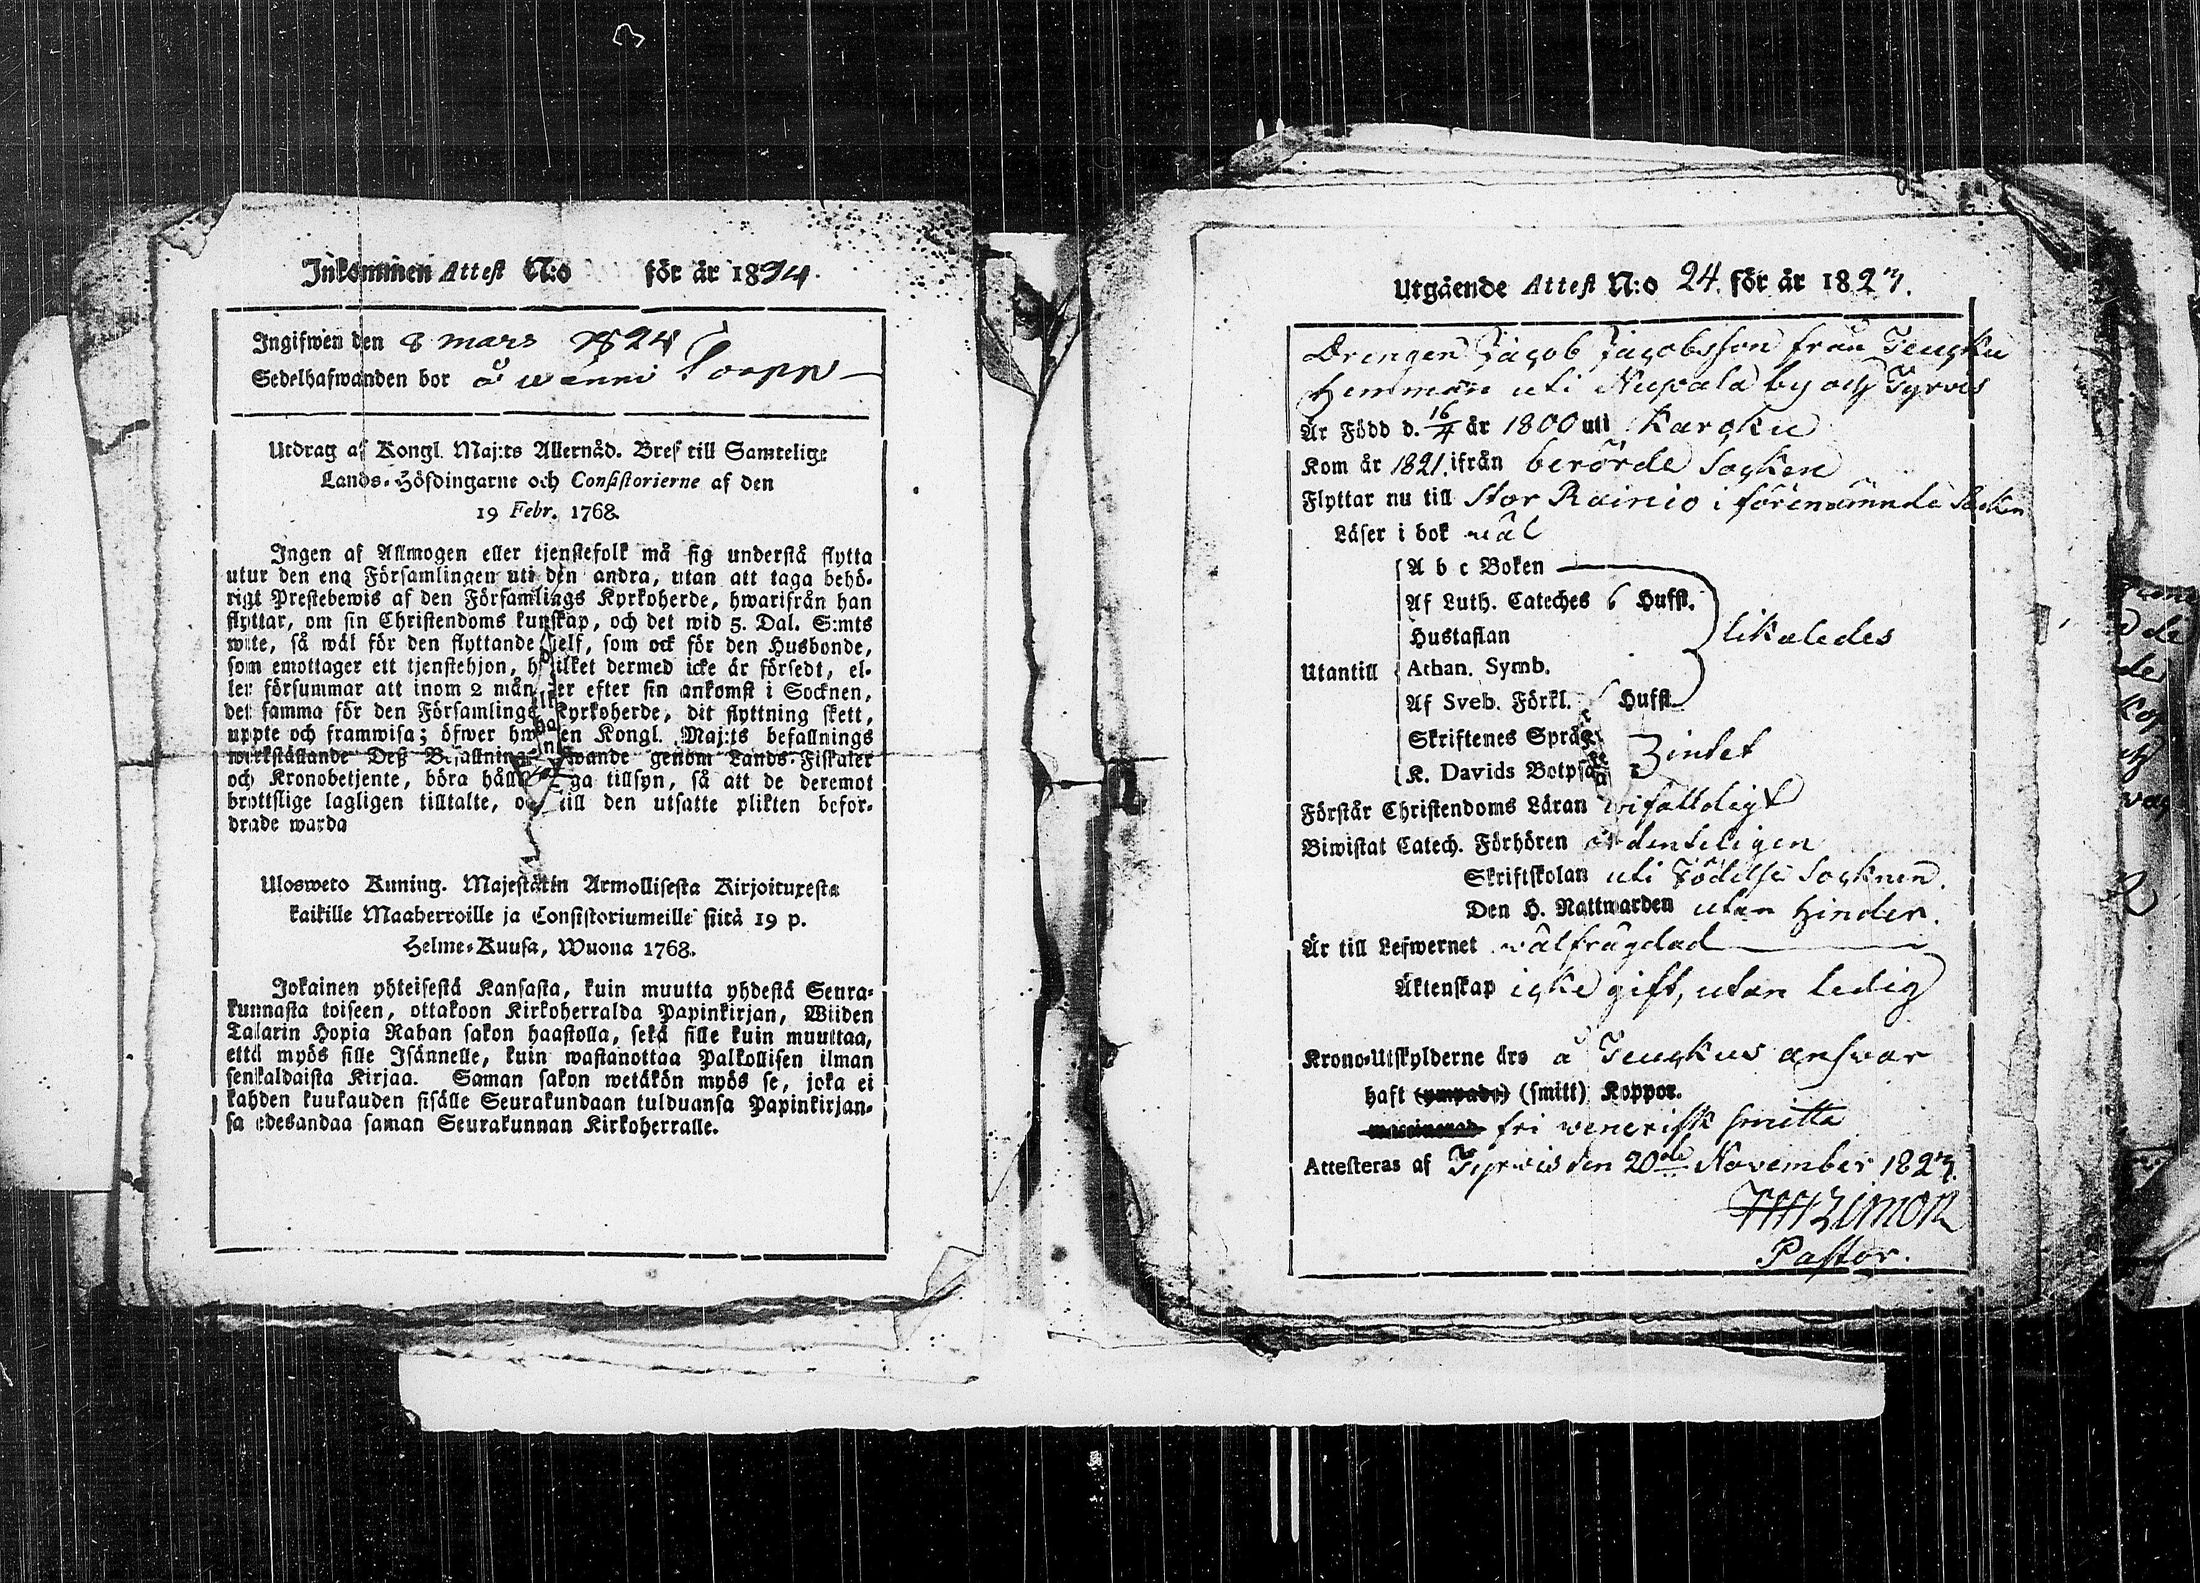 Inkommen Attest N:o för år 1824.
Ingifwen den 8 mars 1824
Sedelhafwanden bor å wänni Torpp
Utdrag af Kongl. Maj:ts Allernåd. Bref till Samtelige
Lands-Höfdingarne och Consistorierne af den
19 Febr. 1768.
Ingen af Allmogen eller tjenstefolk må sig understå flytta
utur den ena Församlingen uti den andra, utan att taga behö-
rigt Prestebewis af den Församlings Kyrkoherde, hwarifrån han
flyttar, om sin Christendoms kunskap, och det wid 5. Dal. S:mts
wite, så wäl för den flyttande sjelf, som ock för den Husbonde,
som emottager ett tjenstehjon, hwilket dermed icke är försedt, el-
ler försummar att inom 2 månader efter sin ankomst i Socknen,
det samma för den Församlings Kyrkoherde, dit flyttning skett,
uppte och framwisa; öfwer hwilken Kongl. Maj:ts befallnings
werkställande Deß Befallningshafwande genom Lands-Fiskaler
och Kronobetjente, böra hålla noga tillsyn, så att de deremot
brottslige lagligen tilltalte, och till den utsatte plikten befor-
drade warda
Ulosweto Kuning. Majestätin Armollisesta Kirjoituxesta
kaikille Maaherroille ja Consistoriumeille siitä 19 p.
Helme-Kuusa, Wuona 1768.
Jokainen yhteisestä Kansasta, kuin muutta yhdestä Seura-
kunnasta toiseen, ottakoon Kirkoherralda Papinkirjan, Wiiden
Talarin Hopia Rahan sakon haastolla, sekä sille kuin muuttaa,
että myös sille Isännelle, kuin wastanottaa Palkollisen ilman
senkaldaista Kirjaa. Saman sakon wetäkön myös se, joka ei
kahden kuukauden sisälle Seurakundaan tulduansa Papinkirjan-
sa edesandaa saman Seurakunnan Kirkoherralle.
Utgående Attest N:o 24. för år 1823.
Drengen Jacob Jacobsson från Teucku
Hemman uti Nupala by och Tyrvis
Är Född d. 16/4 år 1800 uti Karcku
Kom år 1821. ifrån berörde Socken
Flyttar nu till Stor Rainio i förenämnde Socken
Läser i bok wäl
A b c Boken
Af Luth. Cateches 6 Hufst.
Hustaflan likaledes
Utantill Athan. Symb.
Af Sveb. Förkl. Hufst.
Skriftenes Språk
K. Davids Botps. intet
Förstår Christendoms Läran enfalldigt
Biwistat Catech. Förhören ordenteligen
Skriftskolan uti Födelse Socknen.
Den H. Nattwarden utan Hinder.
Är till Lefwernet wälfrägdad
Äktenskap icke gift, utan ledig
Krono-Utskylderne äro å Teuckus answar
haft (ympade) (smitt) Koppor.
fri wenerisk smitta
Attesteras af Tyrwis den 20de November 1823.
Pastor.